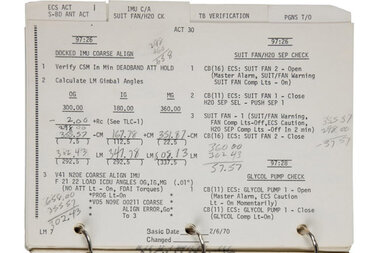 ECS ACT
S-BD ANT ACT
IMU C/A
SUIT FAN/H2O CK
TB VERIFICATION
PGNS T/O
ACT 30
97:26
DOCKED IMU COARSE ALIGN
1 Verify CSM In Min DEADBAND ATT HOLD
2 Calculate LM Gimbal Angles
OG IG MG
300.00 180.00 360.00
- 2.00 +Rc (See TLC-1)
298.00
-355.57 -CM 167.78 -CM 351.87 -CM
(7.5) (112.5) (22.5)
302.43 LM 347.78 LM 08.13 LM
(292.5) (292.5) (337.5)
3 V41 N20E COARSE IMU
F 21 22 LOAD ICDU ANGLES OG,IG,MG (.01°)
(NO ATT Lt - On, FDAI Torques)
*PROG Lt-On *
*V05 N09E 00211 COARSE *
* ALIGN ERROR,Go*
* To 3 *
658.00
355.57
302.43
97:26
SUIT FAN/H2O SEP CHECK
1 CB(16) ECS: SUIT FAN 2 - Open
(Master Alarm, SUIT/FAN Warning
SUIT FAN Comp Lt-On)
2 CB(11) ECS: SUIT FAN 1 - Close
H2O SEP SEL - PUSH SEP 1
3 SUIT FAN - 1 (SUIT/FAN Warning,
FAN Comp Lts-Off,ECS Caution,
H2O SEP Comp Lts-Off In 2 min)
CB(16) ECS: SUIT FAN 2 - Close
355.57
298.00
-57.57
360.00
302.43
57.57
97:28
GLYCOL PUMP CHECK
CB(11) ECS: GLYCOL PUMP 1 - Open
(Master Alarm, ECS Caution
Lt - On Momentarily)
CB(11) ECS: GLYCOL PUMP 1 - Close
(GLYCOL Comp Lt-On)
LM 7
Basic Date 2/6/70
Changed